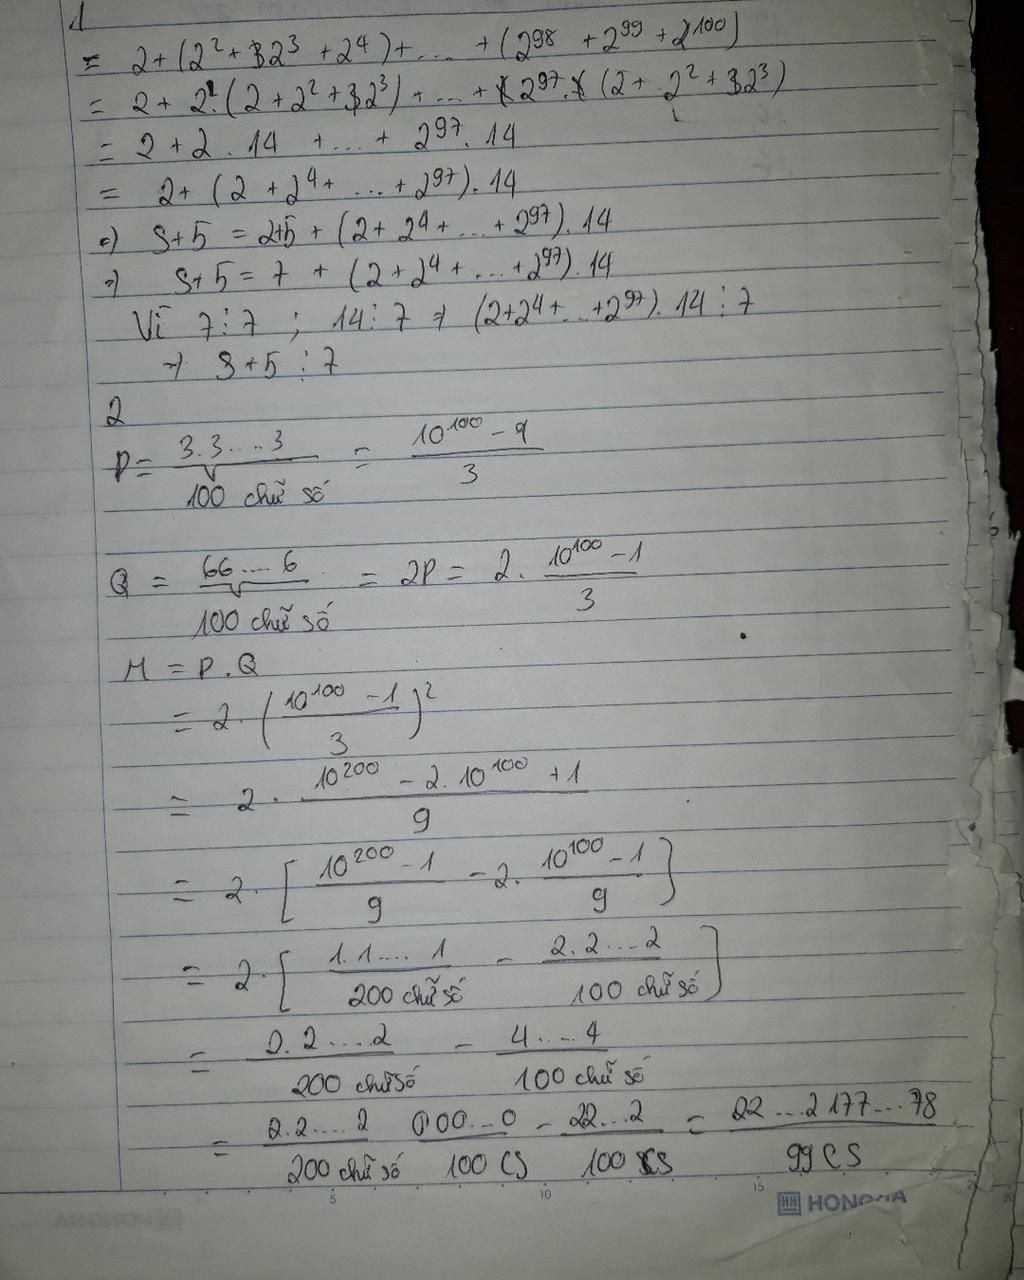 1
= 2+(2² + 2³ + 2⁴)+ ... + (2⁹⁸ + 2⁹⁹ + 2¹⁰⁰)
= 2 + 2.(2 + 2² + 2³) + ... + 2⁹⁷. (2 + 2² + 2³)
= 2 + 2 . 14 + ... + 2⁹⁷. 14
= 2+ (2 + 2⁴ + ... + 2⁹⁷). 14
=) S+5 = 2+5 + (2+ 2⁴ + ... + 2⁹⁷). 14
=) S+5 = 7 + (2 + 2⁴ + ... + 2⁹⁷). 14
Vì 7⋮7 ; 14⋮7 => (2+2⁴+ ... +2⁹⁷). 14⋮7
=) S+5 ⋮7
2
P = 3.3....3 / 100 chữ số = (10¹⁰⁰ - 9) / 3
Q = 66....6 / 100 chữ số = 2P = 2. (10¹⁰⁰ - 1) / 3
M = P.Q
= 2. ((10¹⁰⁰ - 1) / 3)²
= 2. (10²⁰⁰ - 2.10¹⁰⁰ + 1) / 9
= 2. [(10²⁰⁰ - 1) / 9 - 2. (10¹⁰⁰ - 1) / 9]
= 2. [1.1.... 1 / 200 chữ số - 2.2....2 / 100 chữ số]
= 2.2....2 / 200 chữ số - 4....4 / 100 chữ số
= 2.2....2 / 200 chữ số 000...0 / 100 CS - 22...2 / 100 CS = 22...2177...78 / 99 CS
5 10 15
HONGHA